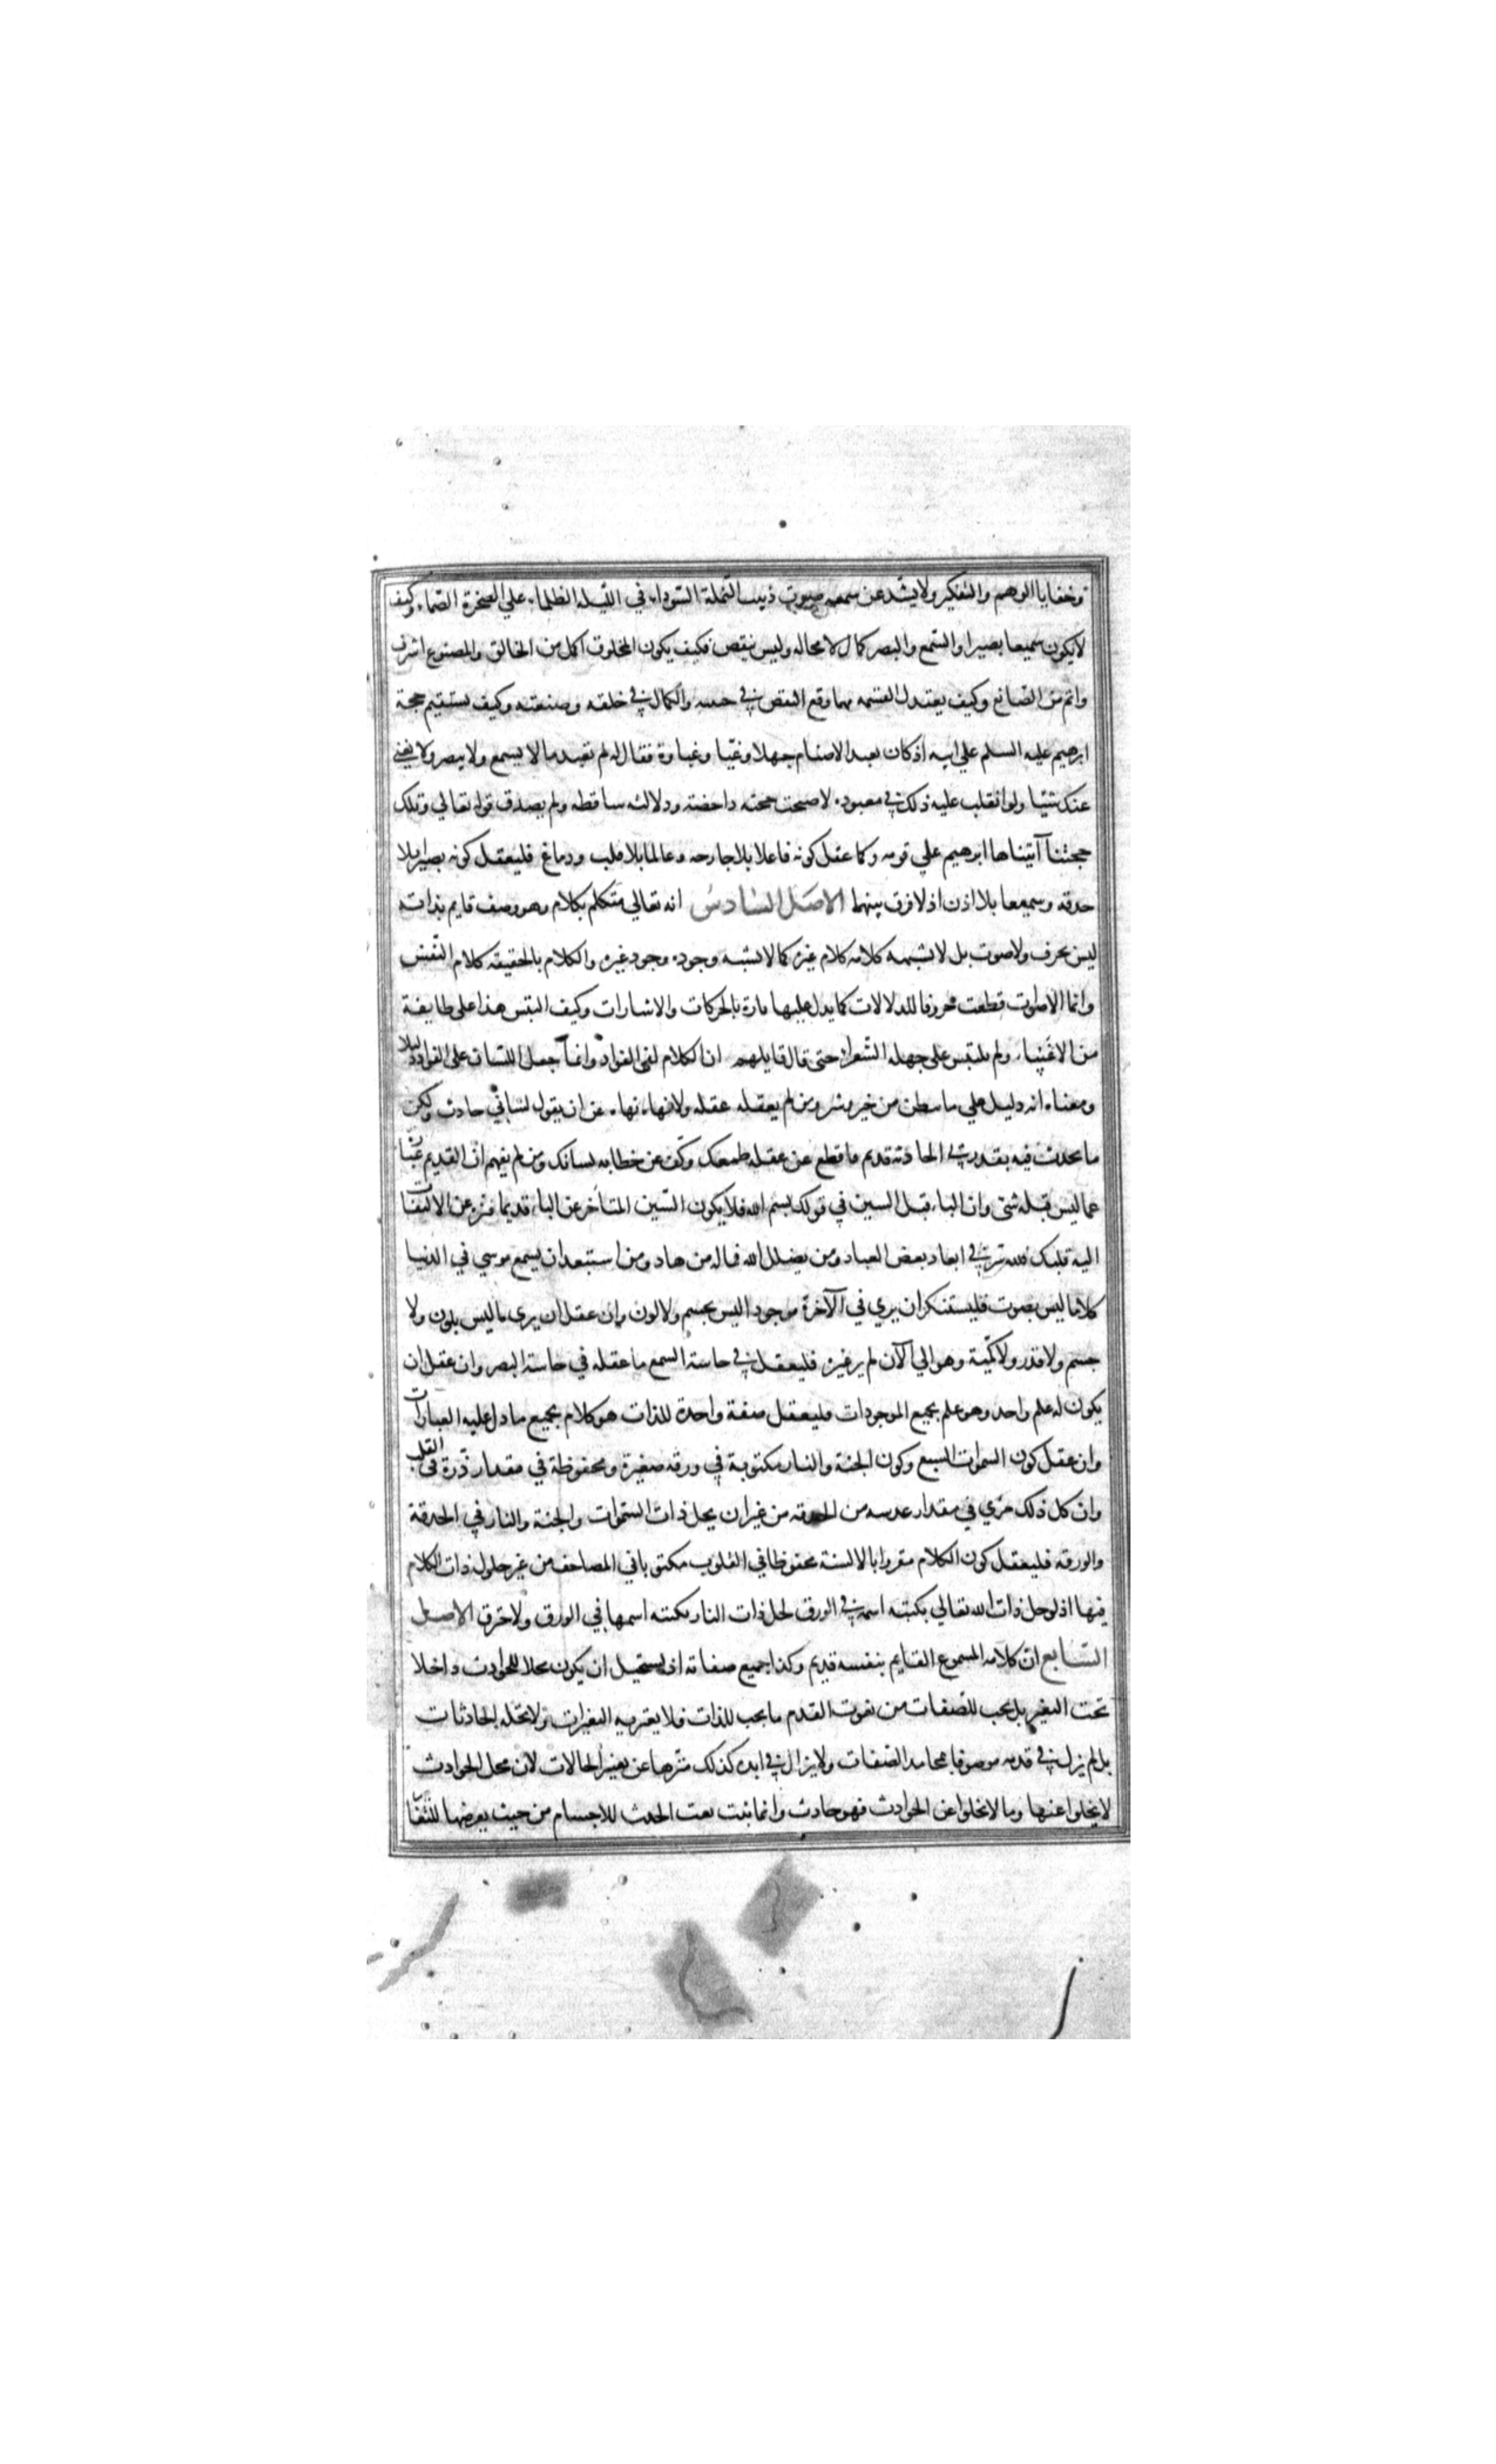 وخفايا الوهم والتفكير ولا يشذ عن سمعه صوت دبيب النملة السوداء في الليله الظلماء علي الصخرة الصماء وكيف
لا يكون سميعا بصيرا والسمع والبصر كمال لا محاله وليس بنقص فكيف يكون المخلوق اكمل من الخالق والمصنوع اشرف
واتم من الصانع وكيف يعتدل القسمه مهما وقع النقص في جهته والكمال في خلقه وصنعته وكيف يستقيم حجة
ابرهيم عليه السلم علي ابيه اذ كان يعبد الاصنام جهلا وغيا وغباوة فقال له لم تعبد ما لا يسمع ولا يبصر ولا يغني
عنك شيئا ولو انقلب عليه ذلك في معبوده لاصبحت حجته داحضة ودلالته ساقطه ولم يصدق قوله تعالي وتلك
حجتنا آتيناها ابرهيم علي قومه وكما عقل كونه فاعلا بلا جارحه وعالما بلا قلب ودماغ فليعقل كونه بصيرا بلا
حدقه وسميعا بلا اذن اذ لا فرق بينهما الاصل السادس انه تعالي متكلم بكلام وهو وصف قايم بذاته
ليس بحرف ولا صوت بل لا يشبه كلامه كلام غيره كما لا يشبه وجوده وجود غيره والكلام بالحقيقه كلام النفس
وانما الاصوات قطعت حروفا للدلالات كما يدل عليها تارة بالحركات والاشارات وكيف التبس هذا على طايفة
من الاغبياء ولم يلتبس على جهله الشعراء حتى قال قايلهم ان الكلام لفي الفؤاد وانما جعل اللسان على الفؤاد دليلا
ومعناه انه دليل علي ما بطن من خير وشر ومن لم يعقله عقله ولا نهاه نهاه عن ان يقول لساني حادث ولكن
ما يحدث فيه بقدرتي الحادثة قديم فاقطع عن عقله طمعك وكف عن خطابه لسانك ومن لم يفهم ان القديم عبارة
عما ليس قبله شئ وان الباء قبل السين في قولك بسم الله فلا يكون السين المتأخر عن الباء قديما فنزه عن الالتفات
اليه قلبك فلله سر في ابعاد بعض العباد ومن يضلل الله فما له من هاد ومن استبعد ان يسمع موسي في الدنيا
كلاما ليس بصوت فليستنكر ان يري في الآخرة موجود اليس بجسم ولا لون وان عقل ان يري ما ليس بلون ولا
جسم ولا قدر ولا كمية وهو الي الآن لم ير غيره فليعقل في حاسة السمع ما عقله في حاسة البصر وان عقل ان
يكون له علم واحد وهو علم بجميع الموجودات فليعقل صفة واحدة للذات هو كلام بجميع ما دل عليه العبارات
وان عقل كون السموات السبع وكون الجنة والنار مكتوبة في ورقه صغيرة ومحفوظة في مقدار ذرة في القلب
وان كل ذلك مرئي في مقدار عدسه من الحدقه من غير ان يحل ذات السموات والجنة والنار في الحدقة
والورقه فليعقل كون الكلام مقروا بالالسنة محفوظا في القلوب مكتوبا في المصاحف من غير حلول ذات الكلام
فيها اذ لو حل ذات الله تعالي بكتبة اسمه في الورق لحل ذات النار بكتبه اسمها في الورق ولاحترق الاصل
السابع ان كلامه المسموع القايم بنفسه قديم وكذا جميع صفاته اذ يستحيل ان يكون محلا للحوادث داخلا
تحت التغير بل يجب للصفات من نعوت القدم ما يجب للذات فلا يعتريه التغيرات ولا تحله الحادثات
بل لم يزل في قدمه موصوفا بمحامد الصفات ولا يزال في ابده كذلك منزها عن تغير الحالات لان محل الحوادث
لا يخلوا عنها وما لا يخلوا عن الحوادث فهو حادث وانما ثبت نعت الحدث للاجسام من حيث تعرضها للتغا